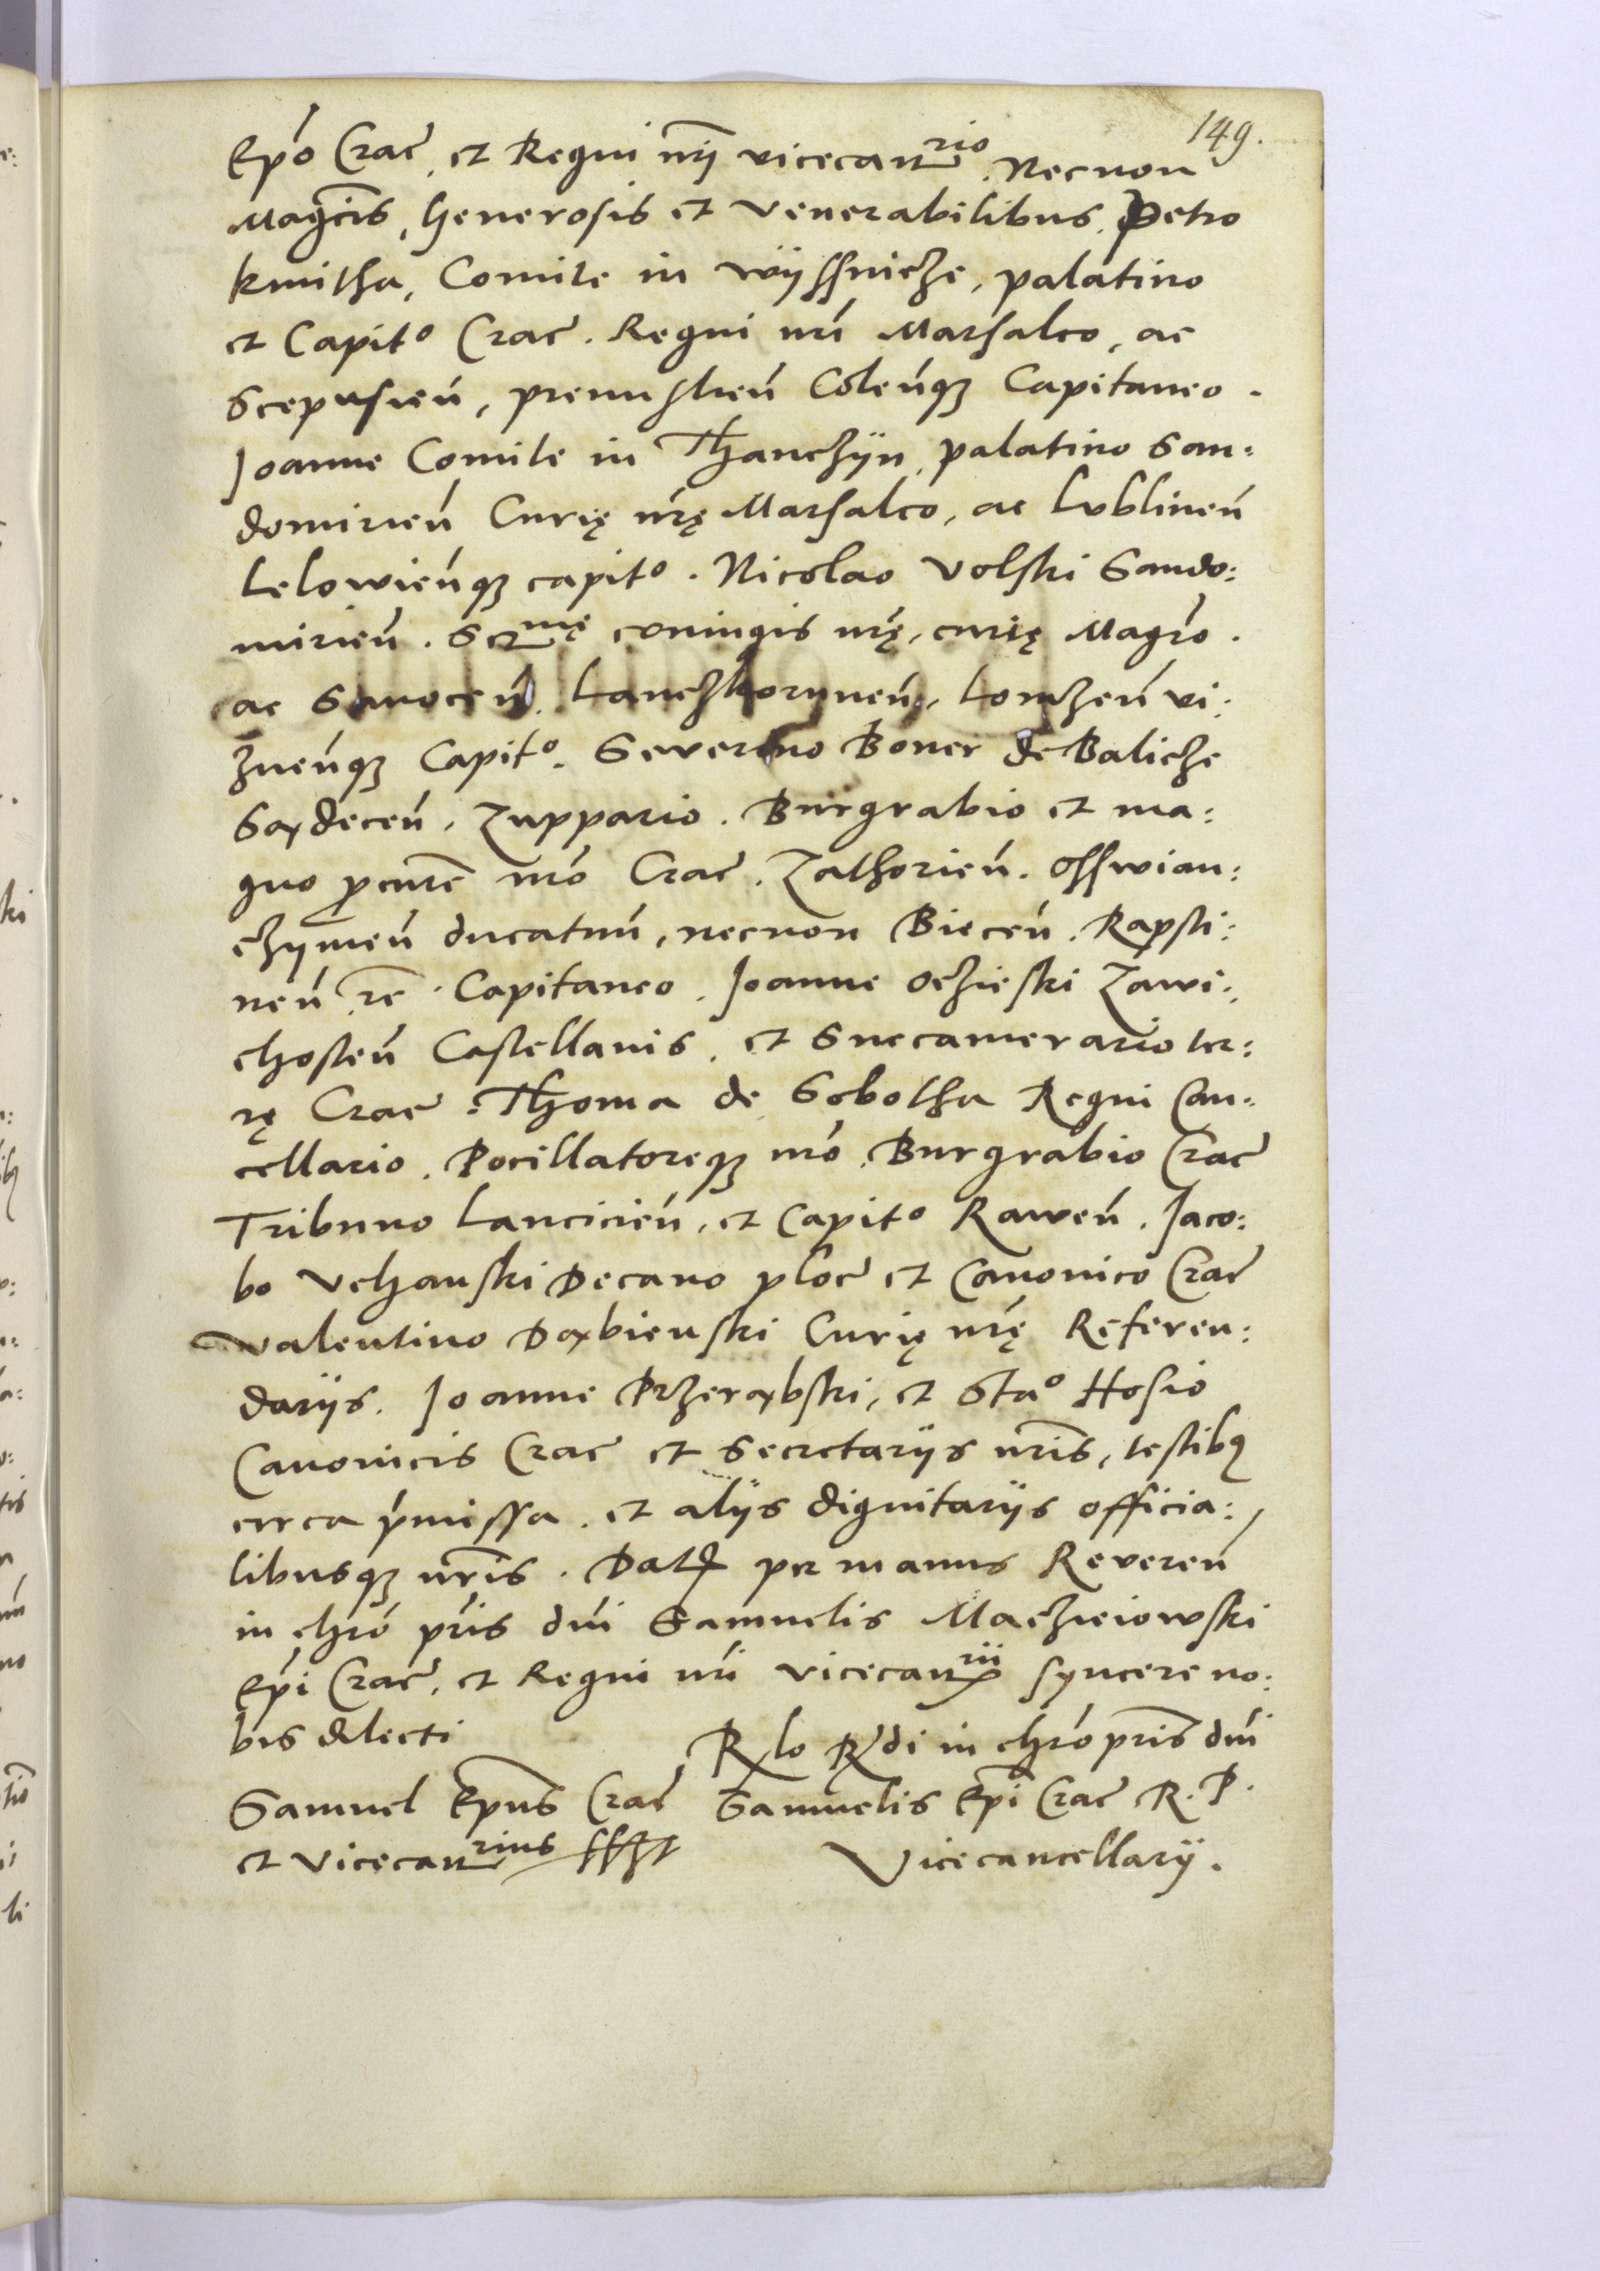 149.
Epō Crac̄. et Regni nrī vicecanrio. Necnon
Magcis, Generosis et Venerabilibus. Petro
kmitha, Comite in wÿssnicze, palatino
et Capito Crac̄. Regni nrī Marsalco, ac
Scepusień, premislień Coleńqz Capitaneo.
Joanne Comite in Thanczÿn, palatino San:
domirień Curię nrę Marsalco, ac lublineń
lelowieńqz capito. Nicolao Volski Sando:
mirień. Sermę coniugis nrę, curię Magrō.
ac Sanoceń. Lanczkoruneń, Lomzeń vi:
zneńqz Capito. Severino Boner de Balicze
Sądeceń, Zuppario. Burgrabio et ma:
gno pcurre nrō Crac̄. Zathorień. Osswian:
czymeń ducatuū, necnon Bieceń. Rapsti:
neń rc̄. Capitaneo. Joanne Oczieski Zawi:
chosteń Castellanis, et Succamerario ter:
rę Crac̄. Thoma de Sobotha Regni Can:
cellario. Pocillatoreqz nrō. Burgrabio Crac̄
Tribuno lancicień, et Capito Raweń. Jaco:
bo Vchanski Decano ploc̄ et Canonico Crac̄
Valentino Dąbienski Curię nrę Referen:
darijs. Joanne Przerąbski, et Stao Hosio
Canonicis Crac̄ et Secretarijs nris, testibꝯ
circa p̄missa. et alijs dignitarijs officia:
libusqz nris. Dat per manus Revereń
in chrō pris dnī Samuelis Maczieiowski
Epī Crac̄, et Regni nrī vicecanrii syncere no:
bis dilecti
Samuel Epus Crac̄
et Vicecanrius sszt
Rlo Rdi in chrō pris dnī
Samuelis Epī Crac̄ R. P.
Vicecancellarij.